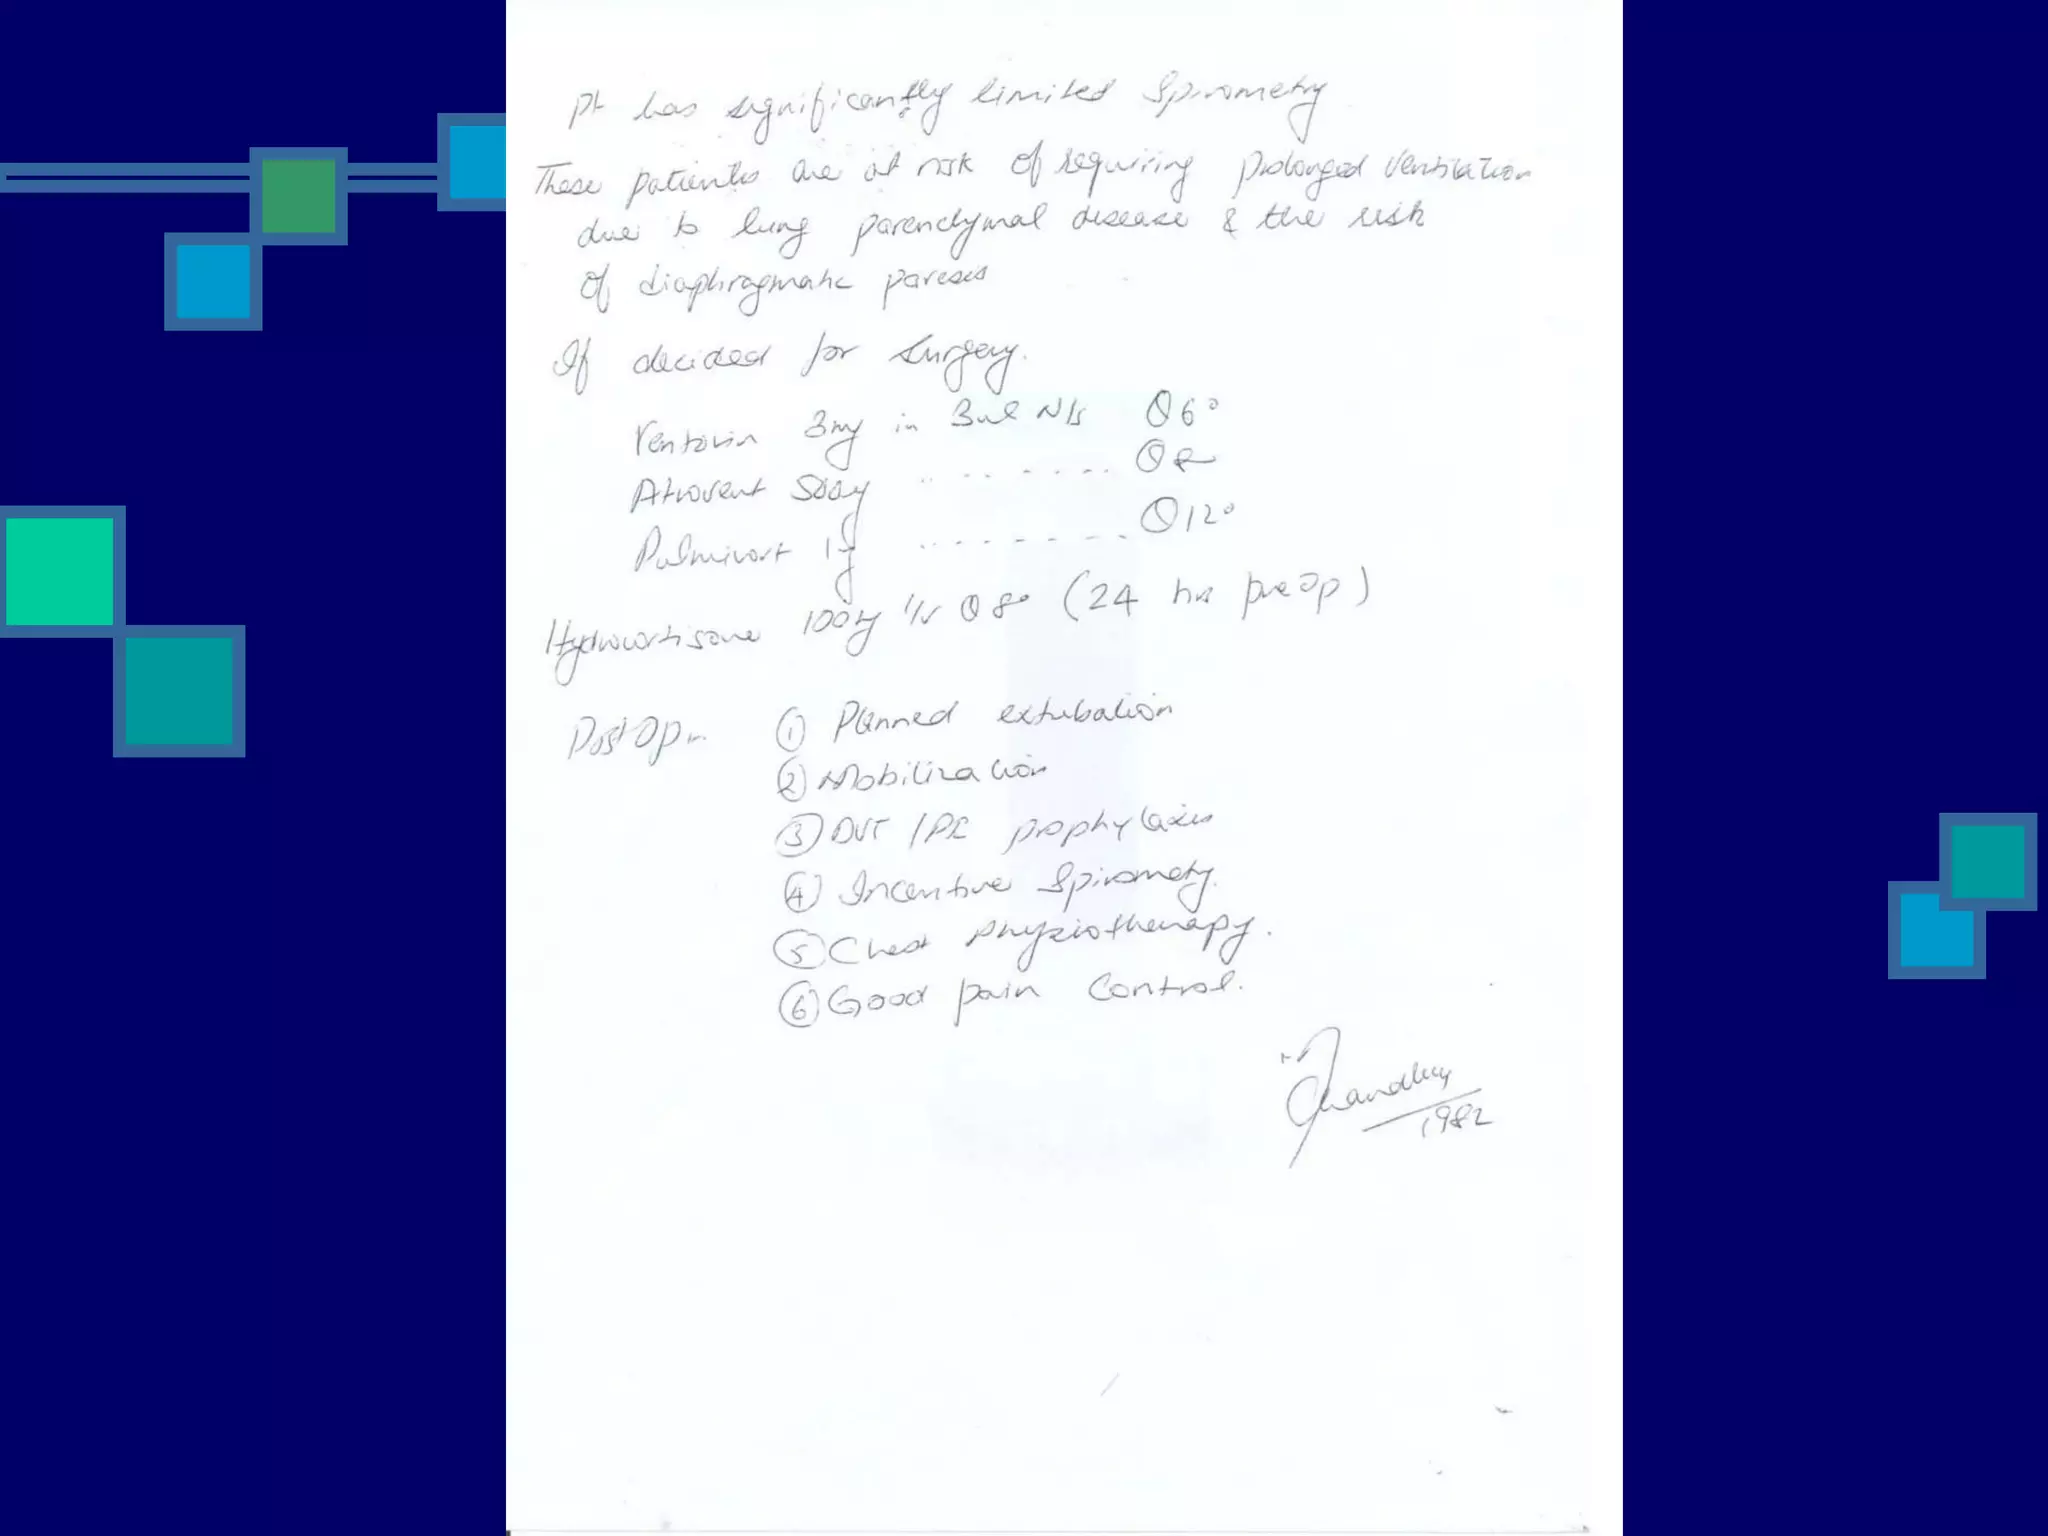 Pt has significantly limited Spirometry
These patients are at risk of requiring prolonged ventilation
due to lung parenchymal disease & the risk
of diaphragmatic paresis
If decided for surgery.
Ventolin 3mg in 3ml N/s Q6°
Atrovent 500mg " - - - - - - Q8
Pulmicort 1g - - - - - - - Q12°
Hydrocortisone 100mg I/v Q8° (24 hrs pre op)
Post Op
① Planned extubation
② Mobilization
③ DVT / PE prophylaxis
④ Incentive Spirometry.
⑤ Chest physiotherapy.
⑥ Good pain Control.
1982